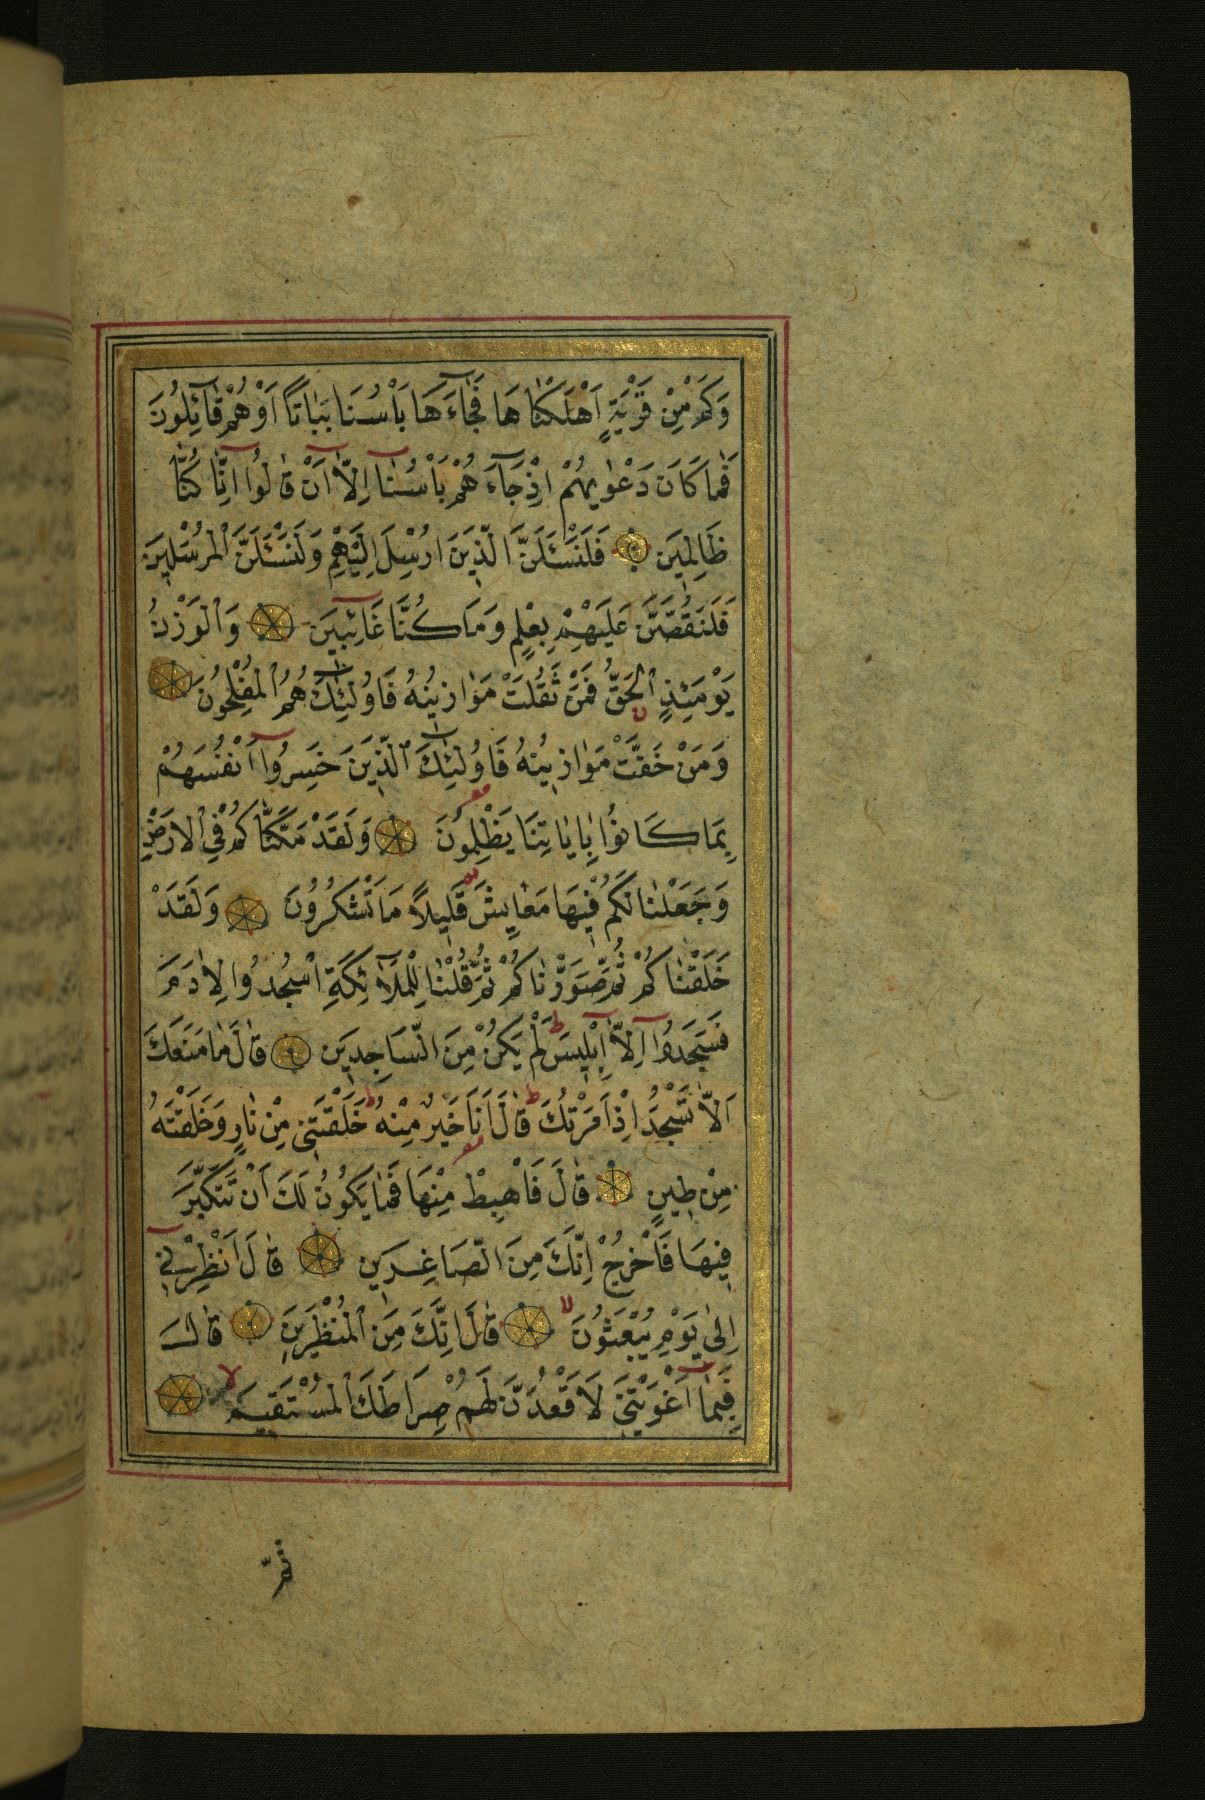 وَكَمْ مِنْ قَرْيَةٍ اَهْلَكْنَاهَا فَجَاءَهَا بَاْسُنَا بَيَاتًا اَوْ هُمْ قَآئِلُونَ
فَمَا كَانَ دَعْوٰيهُمْ اِذْ جَآءَهُمْ بَاْسُنَآ اِلَّآ اَنْ قَالُوٓا اِنَّا كُنَّا
ظَالِمِينَ فَلَنَسْئَلَنَّ الَّذِينَ اُرْسِلَ اِلَيْهِمْ وَلَنَسْئَلَنَّ الْمُرْسَلِينَ
فَلَنَقُصَّنَّ عَلَيْهِمْ بِعِلْمٍ وَمَا كُنَّا غَآئِبِينَ وَالْوَزْنُ
يَوْمَئِذٍ الْحَقُّ فَمَنْ ثَقُلَتْ مَوَازِينُهُ فَاُولٰٓئِكَ هُمُ الْمُفْلِحُونَ
وَمَنْ خَفَّتْ مَوَازِينُهُ فَاُولٰٓئِكَ الَّذِينَ خَسِرُوٓا اَنْفُسَهُمْ
بِمَا كَانُوا بِاٰيَاتِنَا يَظْلِمُونَ وَلَقَدْ مَكَّنَّاكُمْ فِي الْاَرْضِ
وَجَعَلْنَا لَكُمْ فِيهَا مَعَايِشَ قَلِيلًا مَا تَشْكُرُونَ وَلَقَدْ
خَلَقْنَاكُمْ ثُمَّ صَوَّرْنَاكُمْ ثُمَّ قُلْنَا لِلْمَلَآئِكَةِ اسْجُدُوا لِاٰدَمَ
فَسَجَدُوٓا اِلَّآ اِبْلِيسَ لَمْ يَكُنْ مِنَ السَّاجِدِينَ قَالَ مَا مَنَعَكَ
اَلَّا تَسْجُدَ اِذْ اَمَرْتُكَ قَالَ اَنَا خَيْرٌ مِنْهُ خَلَقْتَنِي مِنْ نَارٍ وَخَلَقْتَهُ
مِنْ طِينٍ قَالَ فَاهْبِطْ مِنْهَا فَمَا يَكُونُ لَكَ اَنْ تَتَكَبَّرَ
فِيهَا فَاخْرُجْ اِنَّكَ مِنَ الصَّاغِرِينَ قَالَ اَنْظِرْنِي
اِلٰى يَوْمِ يُبْعَثُونَ قَالَ اِنَّكَ مِنَ الْمُنْظَرِينَ قَالَ
فَبِمَآ اَغْوَيْتَنِي لَاَقْعُدَنَّ لَهُمْ صِرَاطَكَ الْمُسْتَقِيمَ
ثُمَّ